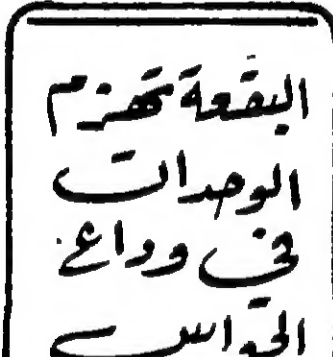 البقعة تهزم
الوحدات
في وداع
الحواس